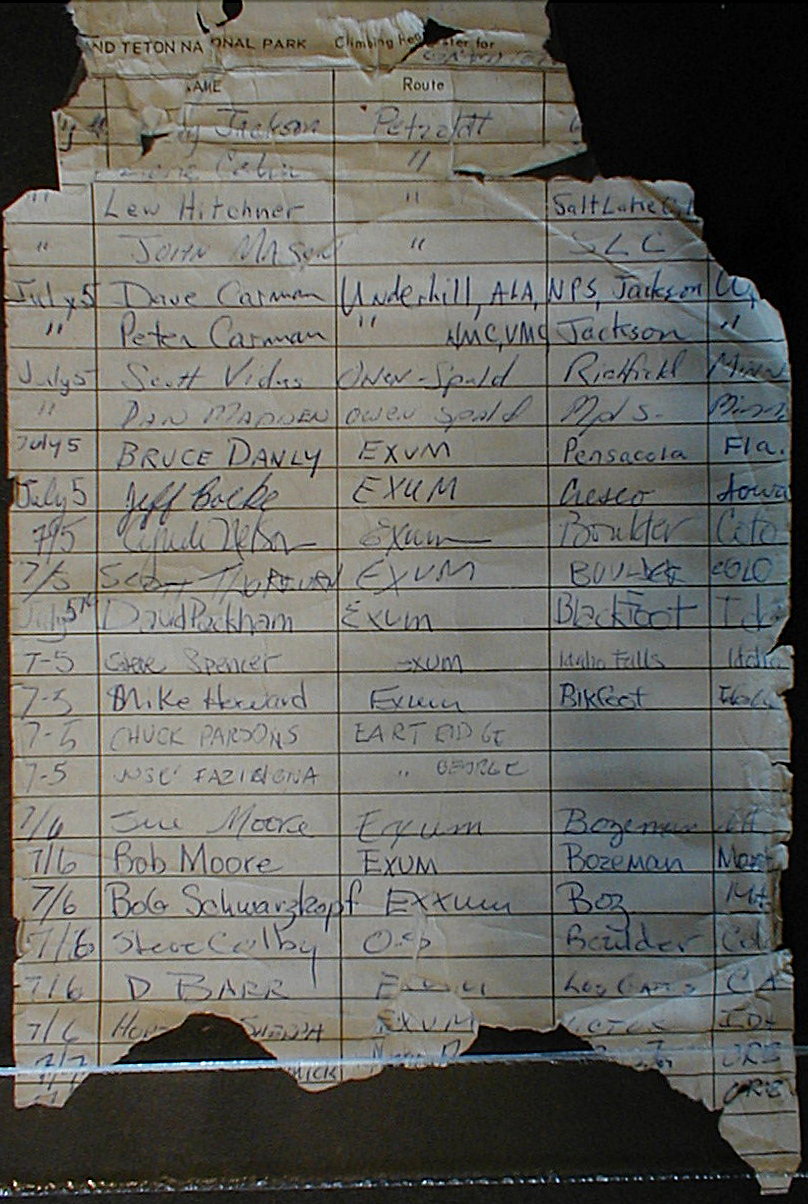 ND TETON NA ONAL PARK Climbing Reg ster for
NAME Route
Jackson Petzoldt
"
" Lew Hitchner " Salt Lake
" JOHN MASON " SLC
July 5 Dave Carman Underhill, ALA, NPS, Jackson W
" Peter Carman " NMC, VMC Jackson "
July 5 Scott Vidas Owen-Spald Richfield MINN
" DAN MADDEN OWEN Spald Mpls. Minn
July 5 BRUCE DANLY EXUM Pensacola Fla.
July 5 Jeff Bocke EXUM Cresco Iowa
7/5 Nelson Exum Boulder Colo
7/5 Scott EXUM BOULDER COLO
July 5th David Packham Exum Blackfoot Ida
7-5 Steve Spencer EXUM Idaho Falls Idaho
7-5 Mike Howard Exum Blkfoot Idaho
7-5 CHUCK PARSONS EAST RIDGE
7-5 "
7/6 Sue Moore Exum Bozeman MT
7/6 Bob Moore EXUM Bozeman Mont
7/6 Bob Schwarzkopf EXXum Boz Mt.
7/6 Steve Colby O-S Boulder Col
7/6 D BARR Exum Los Gatos CA
7/6 EXUM IDA
7/7 ORE
ORE